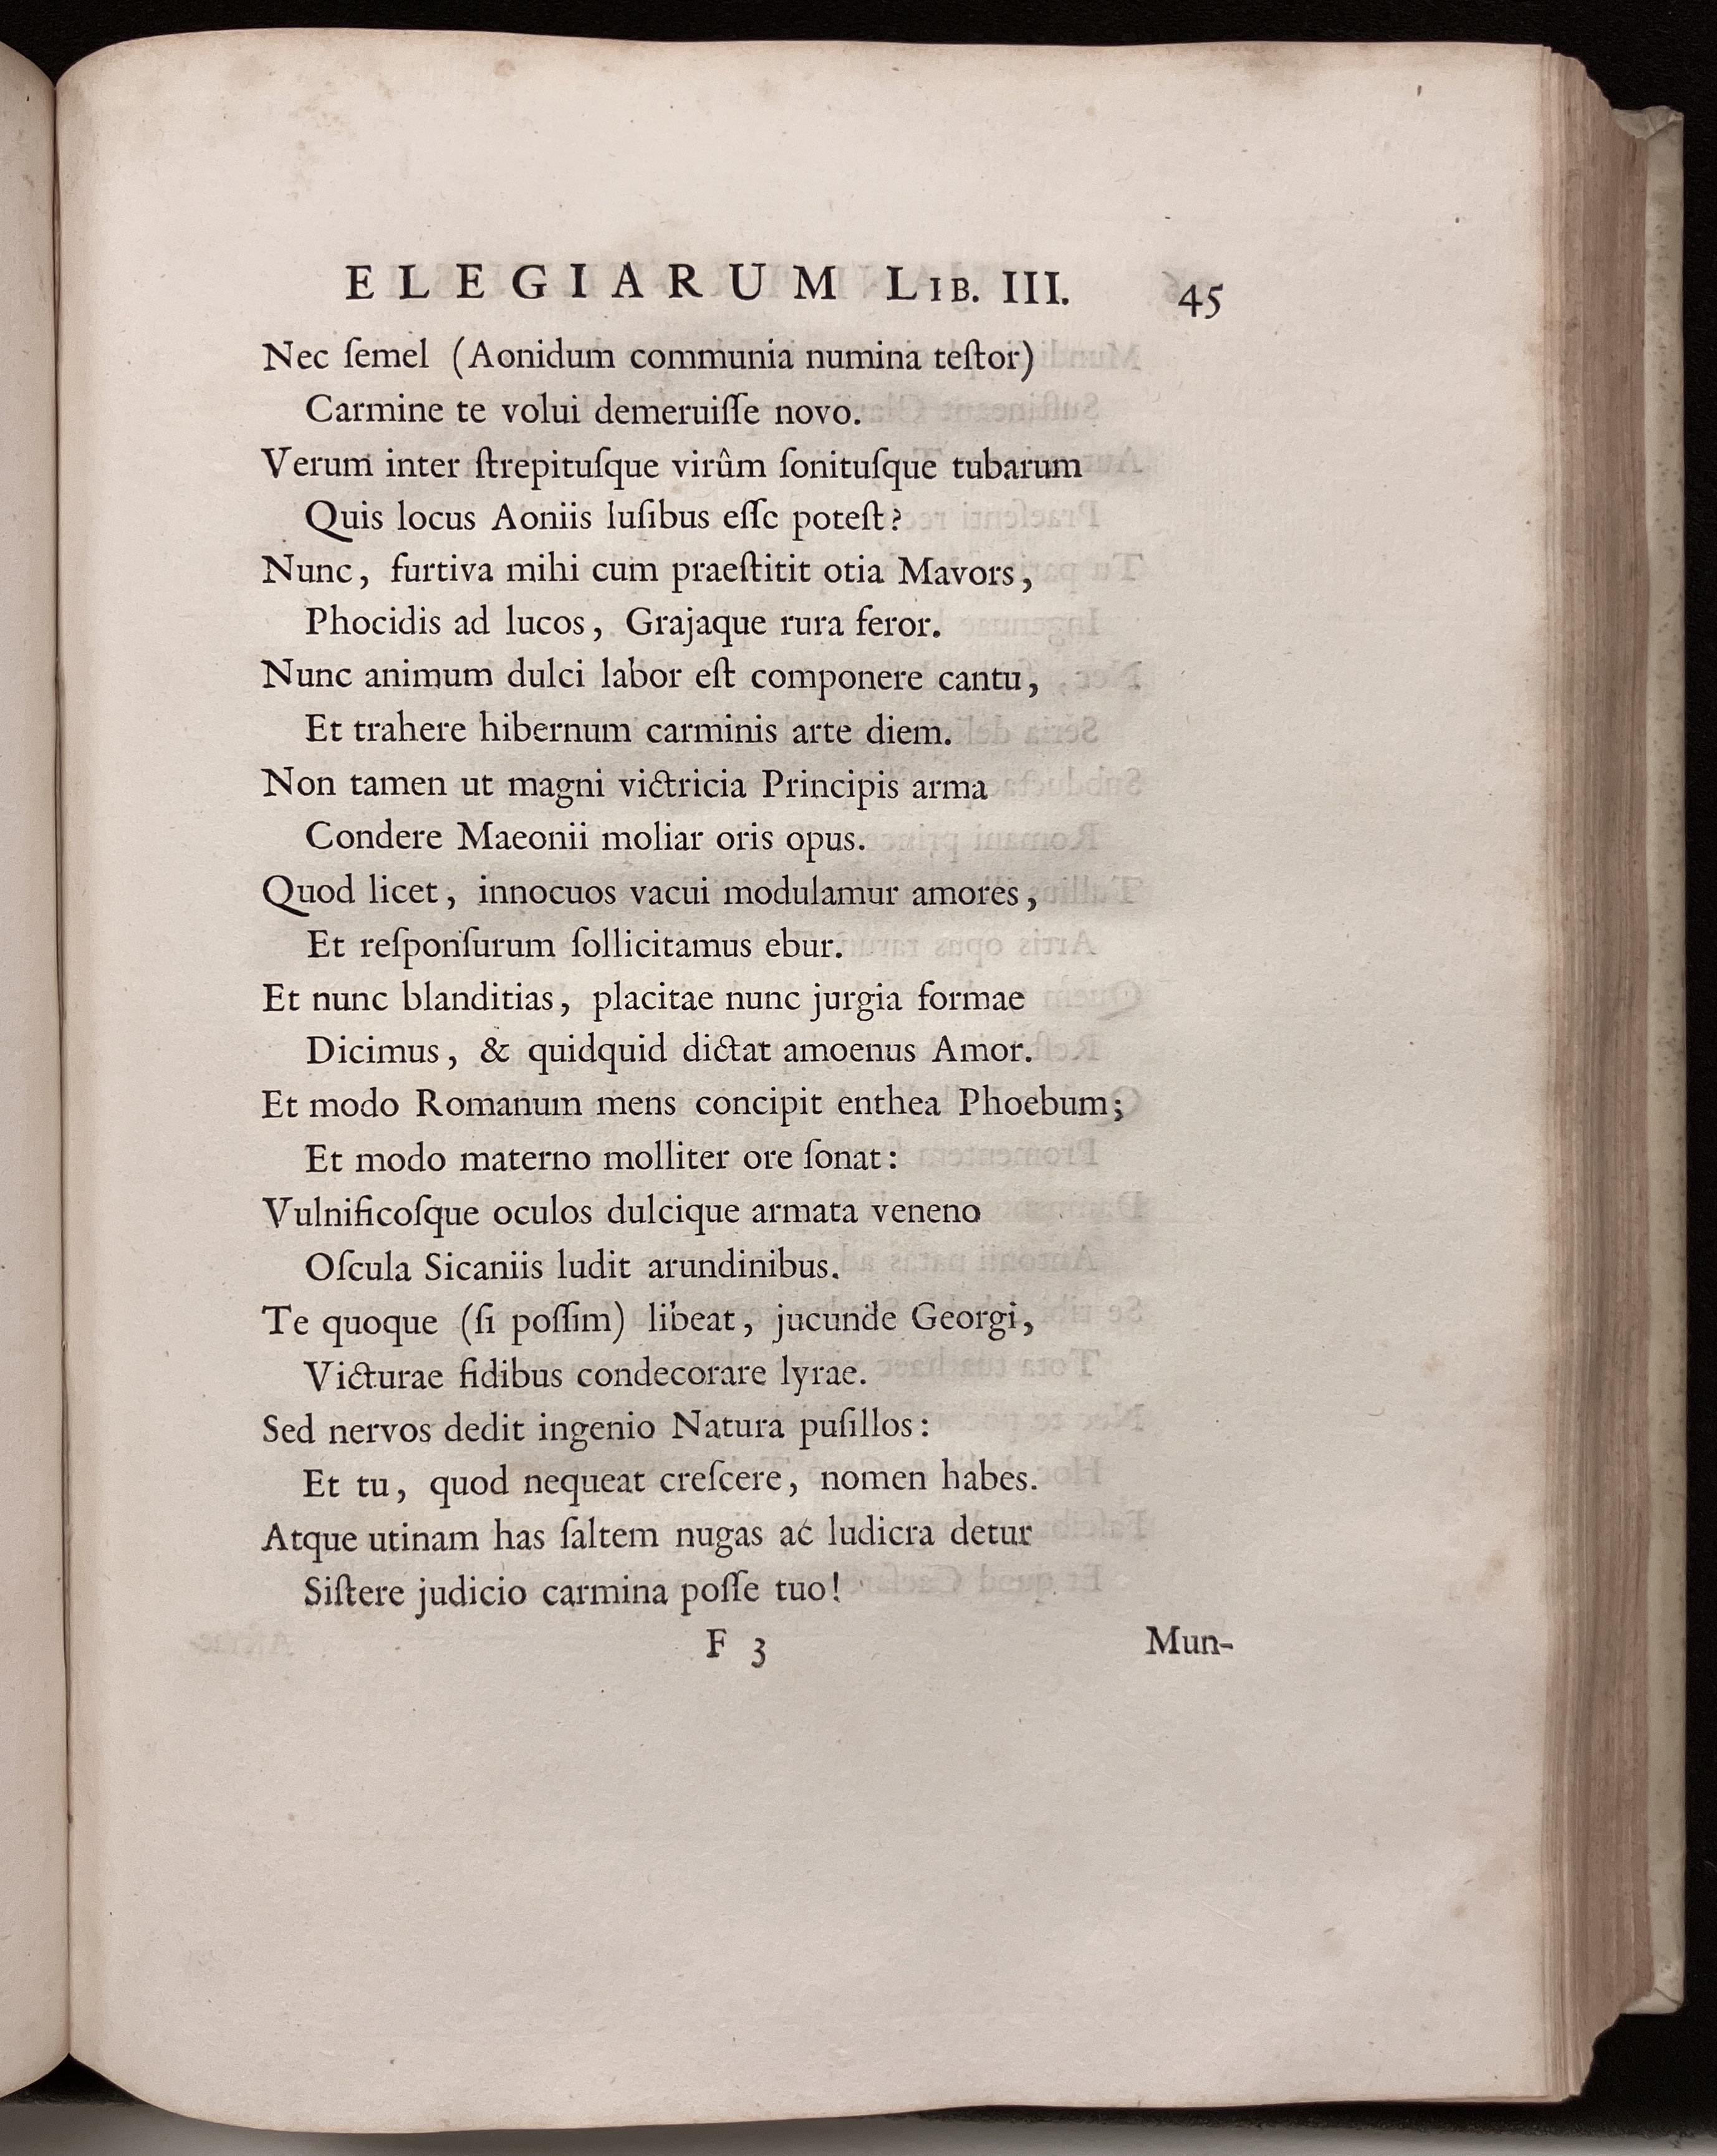 ELEGIARUM LIB. III. 45
Nec ſemel (Aonidum communia numina teſtor)
Carmine te volui demeruiſſe novo.
Verum inter ſtrepituſque virûm ſonituſque tubarum
Quis locus Aoniis luſibus eſſe poteſt?
Nunc, furtiva mihi cum praeſtitit otia Mavors,
Phocidis ad lucos, Grajaque rura feror.
Nunc animum dulci labor eſt componere cantu,
Et trahere hibernum carminis arte diem.
Non tamen ut magni victricia Principis arma
Condere Maeonii moliar oris opus.
Quod licet, innocuos vacui modulamur amores,
Et reſponſurum ſollicitamus ebur.
Et nunc blanditias, placitae nunc jurgia formae
Dicimus, & quidquid dictat amoenus Amor.
Et modo Romanum mens concipit enthea Phoebum;
Et modo materno molliter ore ſonat:
Vulnificoſque oculos dulcique armata veneno
Oſcula Sicaniis ludit arundinibus.
Te quoque (ſi poſſim) libeat, jucunde Georgi,
Victurae fidibus condecorare lyrae.
Sed nervos dedit ingenio Natura puſillos:
Et tu, quod nequeat creſcere, nomen habes.
Atque utinam has ſaltem nugas ac ludicra detur
Siſtere judicio carmina poſſe tuo!
F 3 Mun-